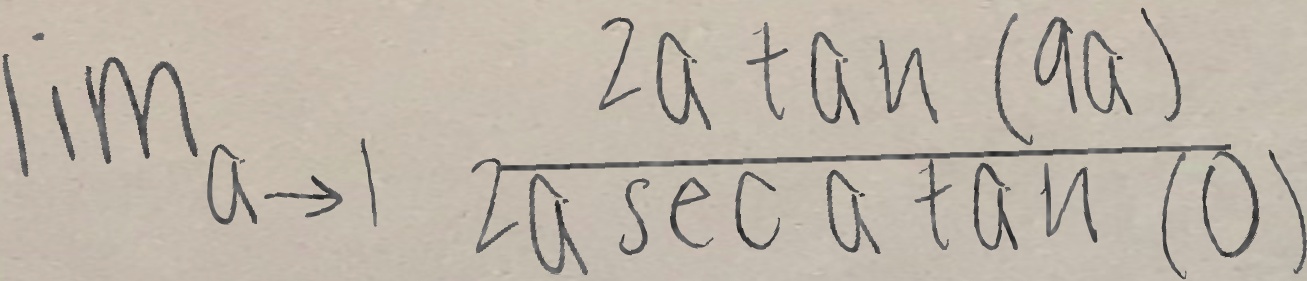 lim a→1 2a tan (9a) / 2a sec a tan (0)